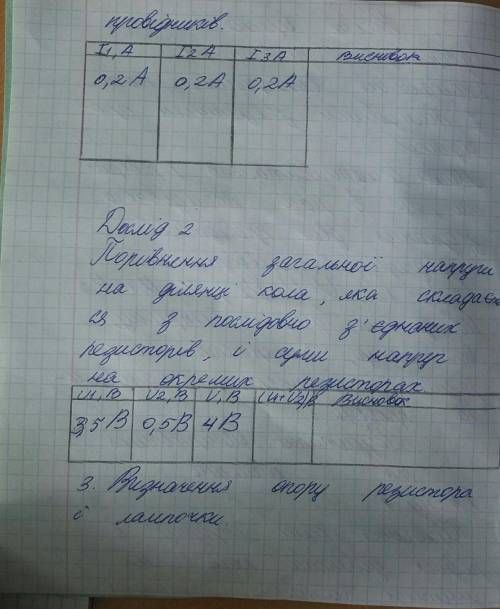 провідників.
I1, A I2 A I3 A Висновок
0,2A 0,2A 0,2A
Дослід 2
Порівнення загальної напруги
на ділянці кола, яка складаєть
ся з послідовно з'єднаних
резисторів, і суми напруг
на окремих резисторах.
U1, В U2, В U, В (U1+U2)В Висновок
3,5В 0,5В 4В
3. Визначення опору резистора
і лампочки.